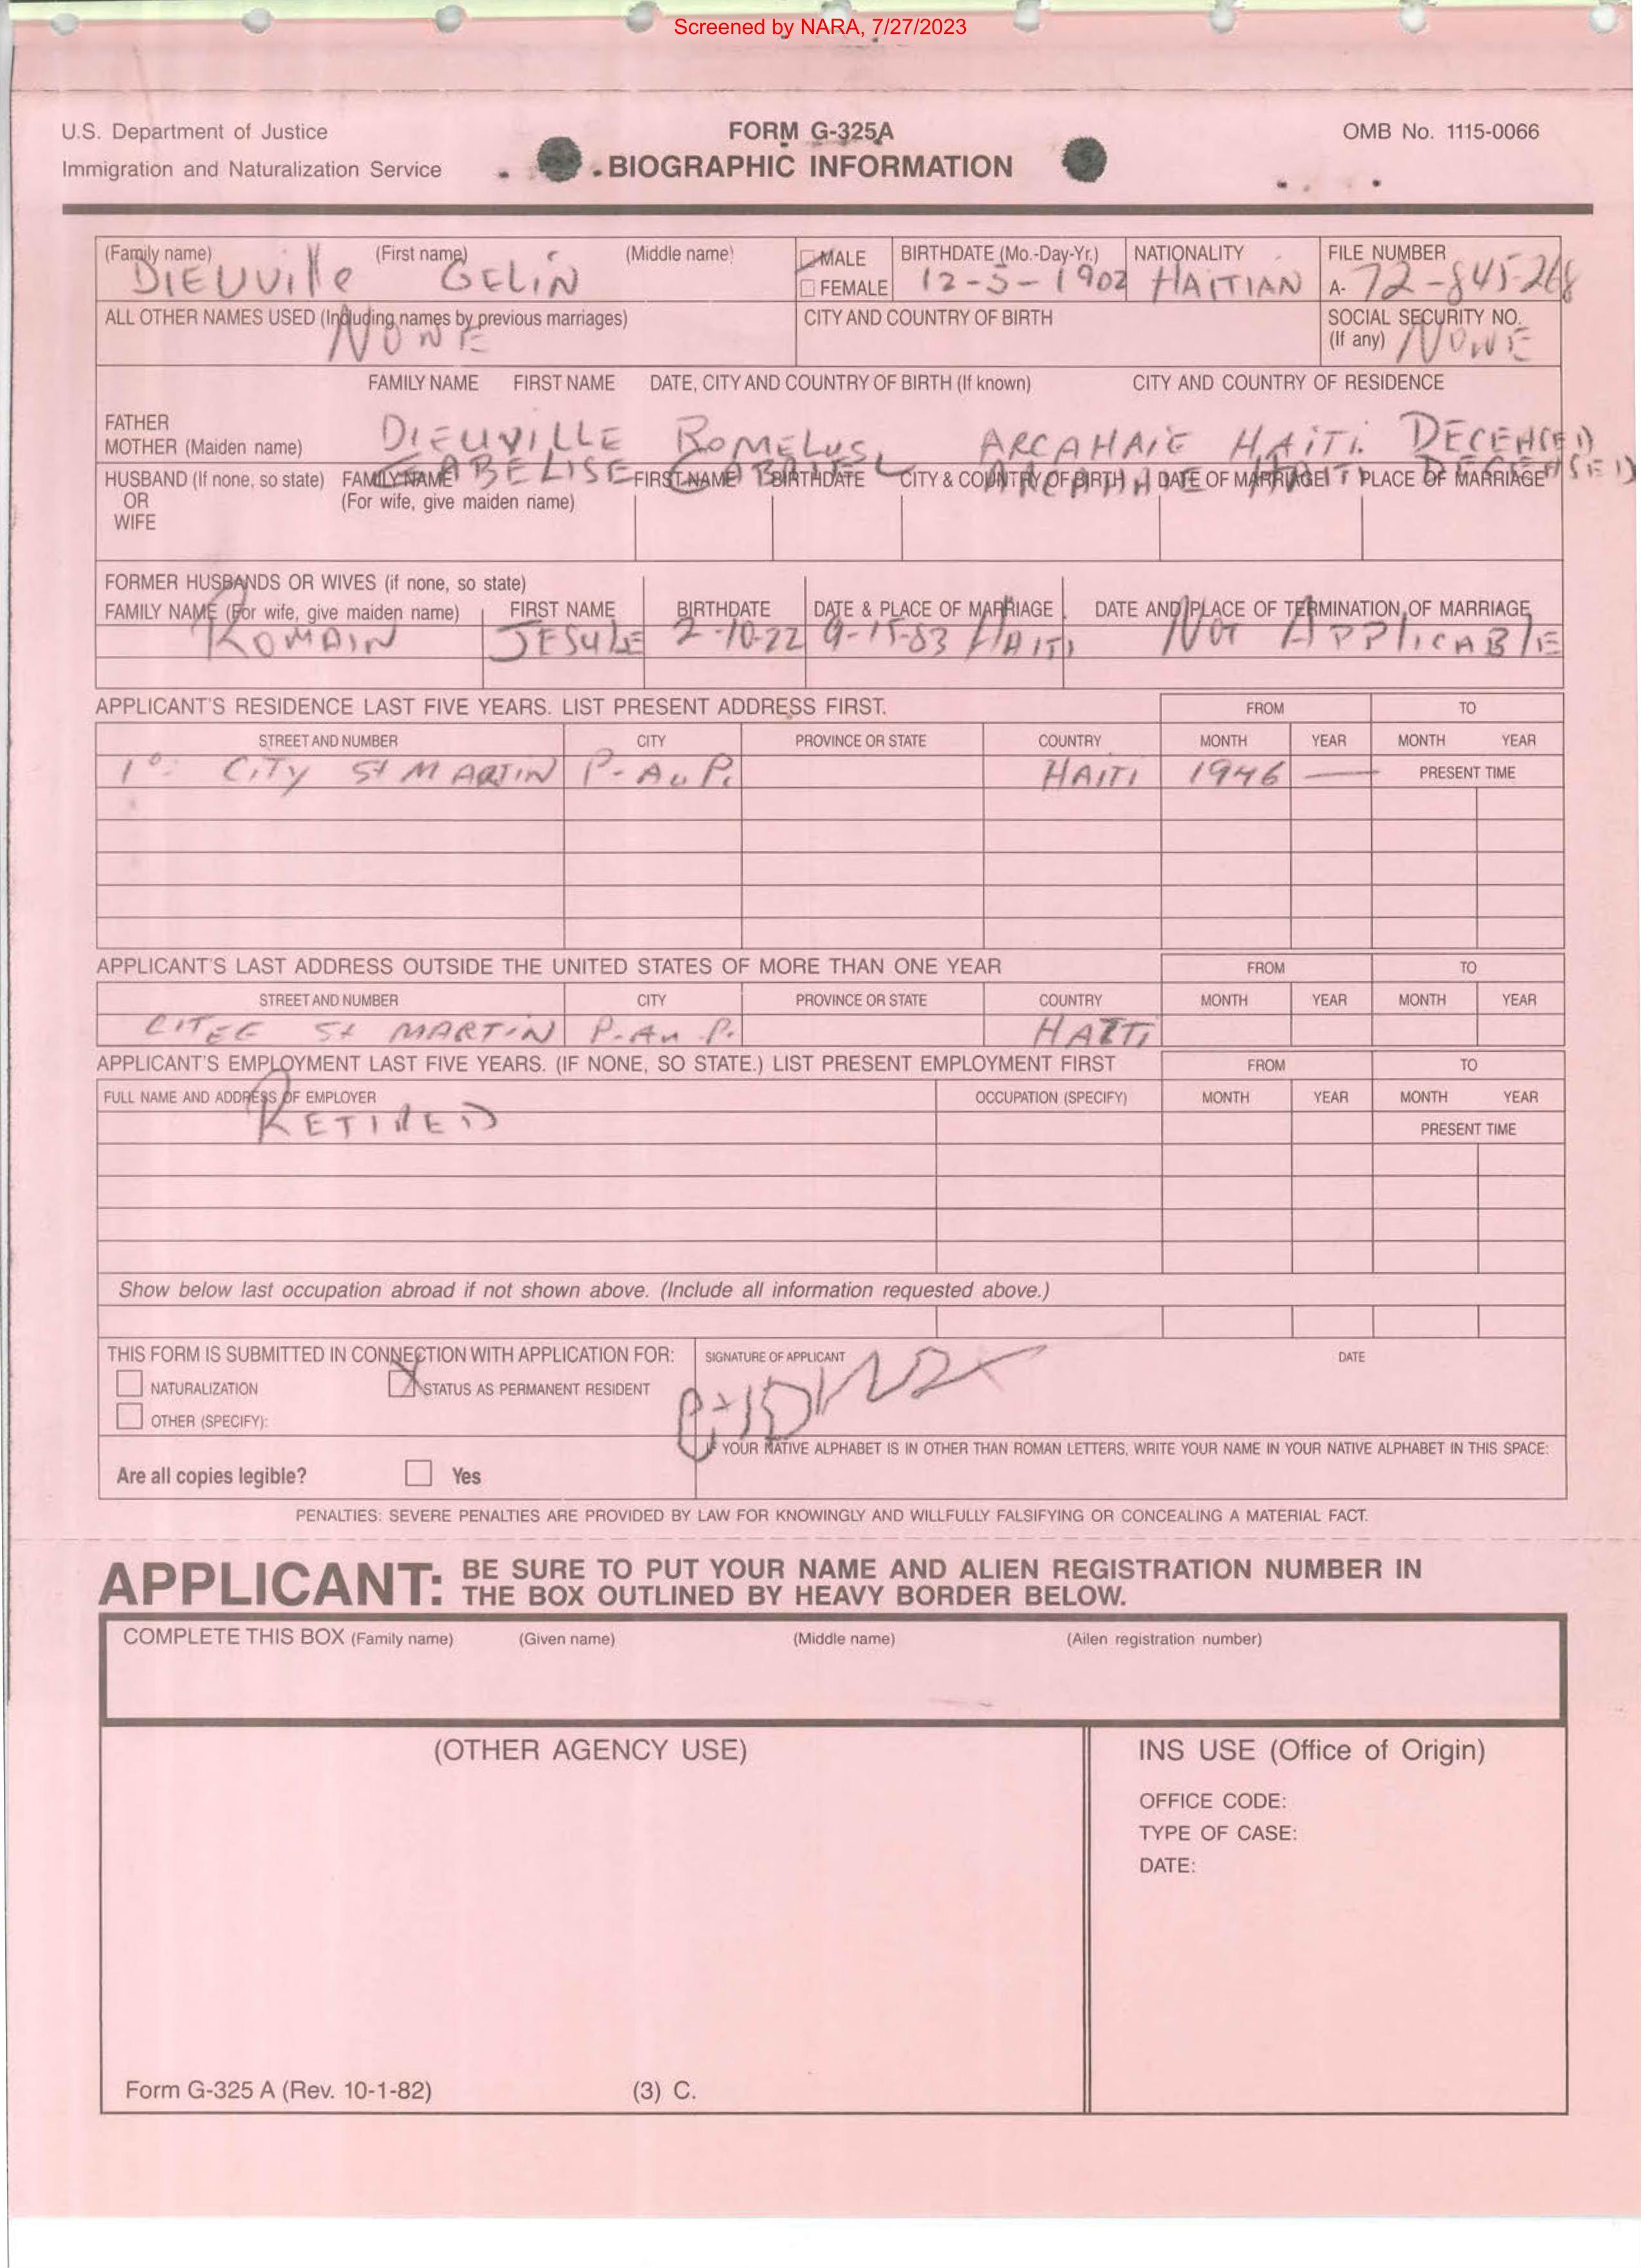 Screened by NARA, 7/27/2023
U.S. Department of Justice
Immigration and Naturalization Service
FORM G-325A
BIOGRAPHIC INFORMATION
OMB No. 1115-0066
(Family name) (First name) (Middle name) MALE FEMALE BIRTHDATE (Mo.-Day-Yr.) NATIONALITY FILE NUMBER
DIEUVille GELIN 12-5-1902 HAITIAN A- 72-845-268
ALL OTHER NAMES USED (Including names by previous marriages) CITY AND COUNTRY OF BIRTH SOCIAL SECURITY NO. (If any)
NONE NONE
FAMILY NAME FIRST NAME DATE, CITY AND COUNTRY OF BIRTH (If known) CITY AND COUNTRY OF RESIDENCE
FATHER
MOTHER (Maiden name)
DIEUVILLE ROMELUS ARCAHAIE HAITI.
HUSBAND (If none, so state) FAMILY NAME FIRST NAME BIRTHDATE CITY & COUNTRY OF BIRTH DATE OF MARRIAGE PLACE OF MARRIAGE
OR (For wife, give maiden name)
WIFE
FORMER HUSBANDS OR WIVES (if none, so state)
FAMILY NAME (For wife, give maiden name) FIRST NAME BIRTHDATE DATE & PLACE OF MARRIAGE DATE AND PLACE OF TERMINATION OF MARRIAGE
ROMAIN 2-10-22 9-15-83 HAITI NOT APPlICABlE
APPLICANT'S RESIDENCE LAST FIVE YEARS. LIST PRESENT ADDRESS FIRST. FROM TO
STREET AND NUMBER CITY PROVINCE OR STATE COUNTRY MONTH YEAR MONTH YEAR
1º CITY St MARTIN P-Au P. HAITI 1946 — PRESENT TIME
APPLICANT'S LAST ADDRESS OUTSIDE THE UNITED STATES OF MORE THAN ONE YEAR FROM TO
STREET AND NUMBER CITY PROVINCE OR STATE COUNTRY MONTH YEAR MONTH YEAR
CITEE St MARTIN P-Au-P. HAITI
APPLICANT'S EMPLOYMENT LAST FIVE YEARS. (IF NONE, SO STATE.) LIST PRESENT EMPLOYMENT FIRST FROM TO
FULL NAME AND ADDRESS OF EMPLOYER OCCUPATION (SPECIFY) MONTH YEAR MONTH YEAR
RETIRED PRESENT TIME
Show below last occupation abroad if not shown above. (Include all information requested above.)
THIS FORM IS SUBMITTED IN CONNECTION WITH APPLICATION FOR: SIGNATURE OF APPLICANT DATE
NATURALIZATION X STATUS AS PERMANENT RESIDENT
OTHER (SPECIFY):
IF YOUR NATIVE ALPHABET IS IN OTHER THAN ROMAN LETTERS, WRITE YOUR NAME IN YOUR NATIVE ALPHABET IN THIS SPACE:
Are all copies legible? Yes
PENALTIES: SEVERE PENALTIES ARE PROVIDED BY LAW FOR KNOWINGLY AND WILLFULLY FALSIFYING OR CONCEALING A MATERIAL FACT.
APPLICANT: BE SURE TO PUT YOUR NAME AND ALIEN REGISTRATION NUMBER IN
THE BOX OUTLINED BY HEAVY BORDER BELOW.
COMPLETE THIS BOX (Family name) (Given name) (Middle name) (Ailen registration number)
(OTHER AGENCY USE) INS USE (Office of Origin)
OFFICE CODE:
TYPE OF CASE:
DATE:
Form G-325 A (Rev. 10-1-82) (3) C.